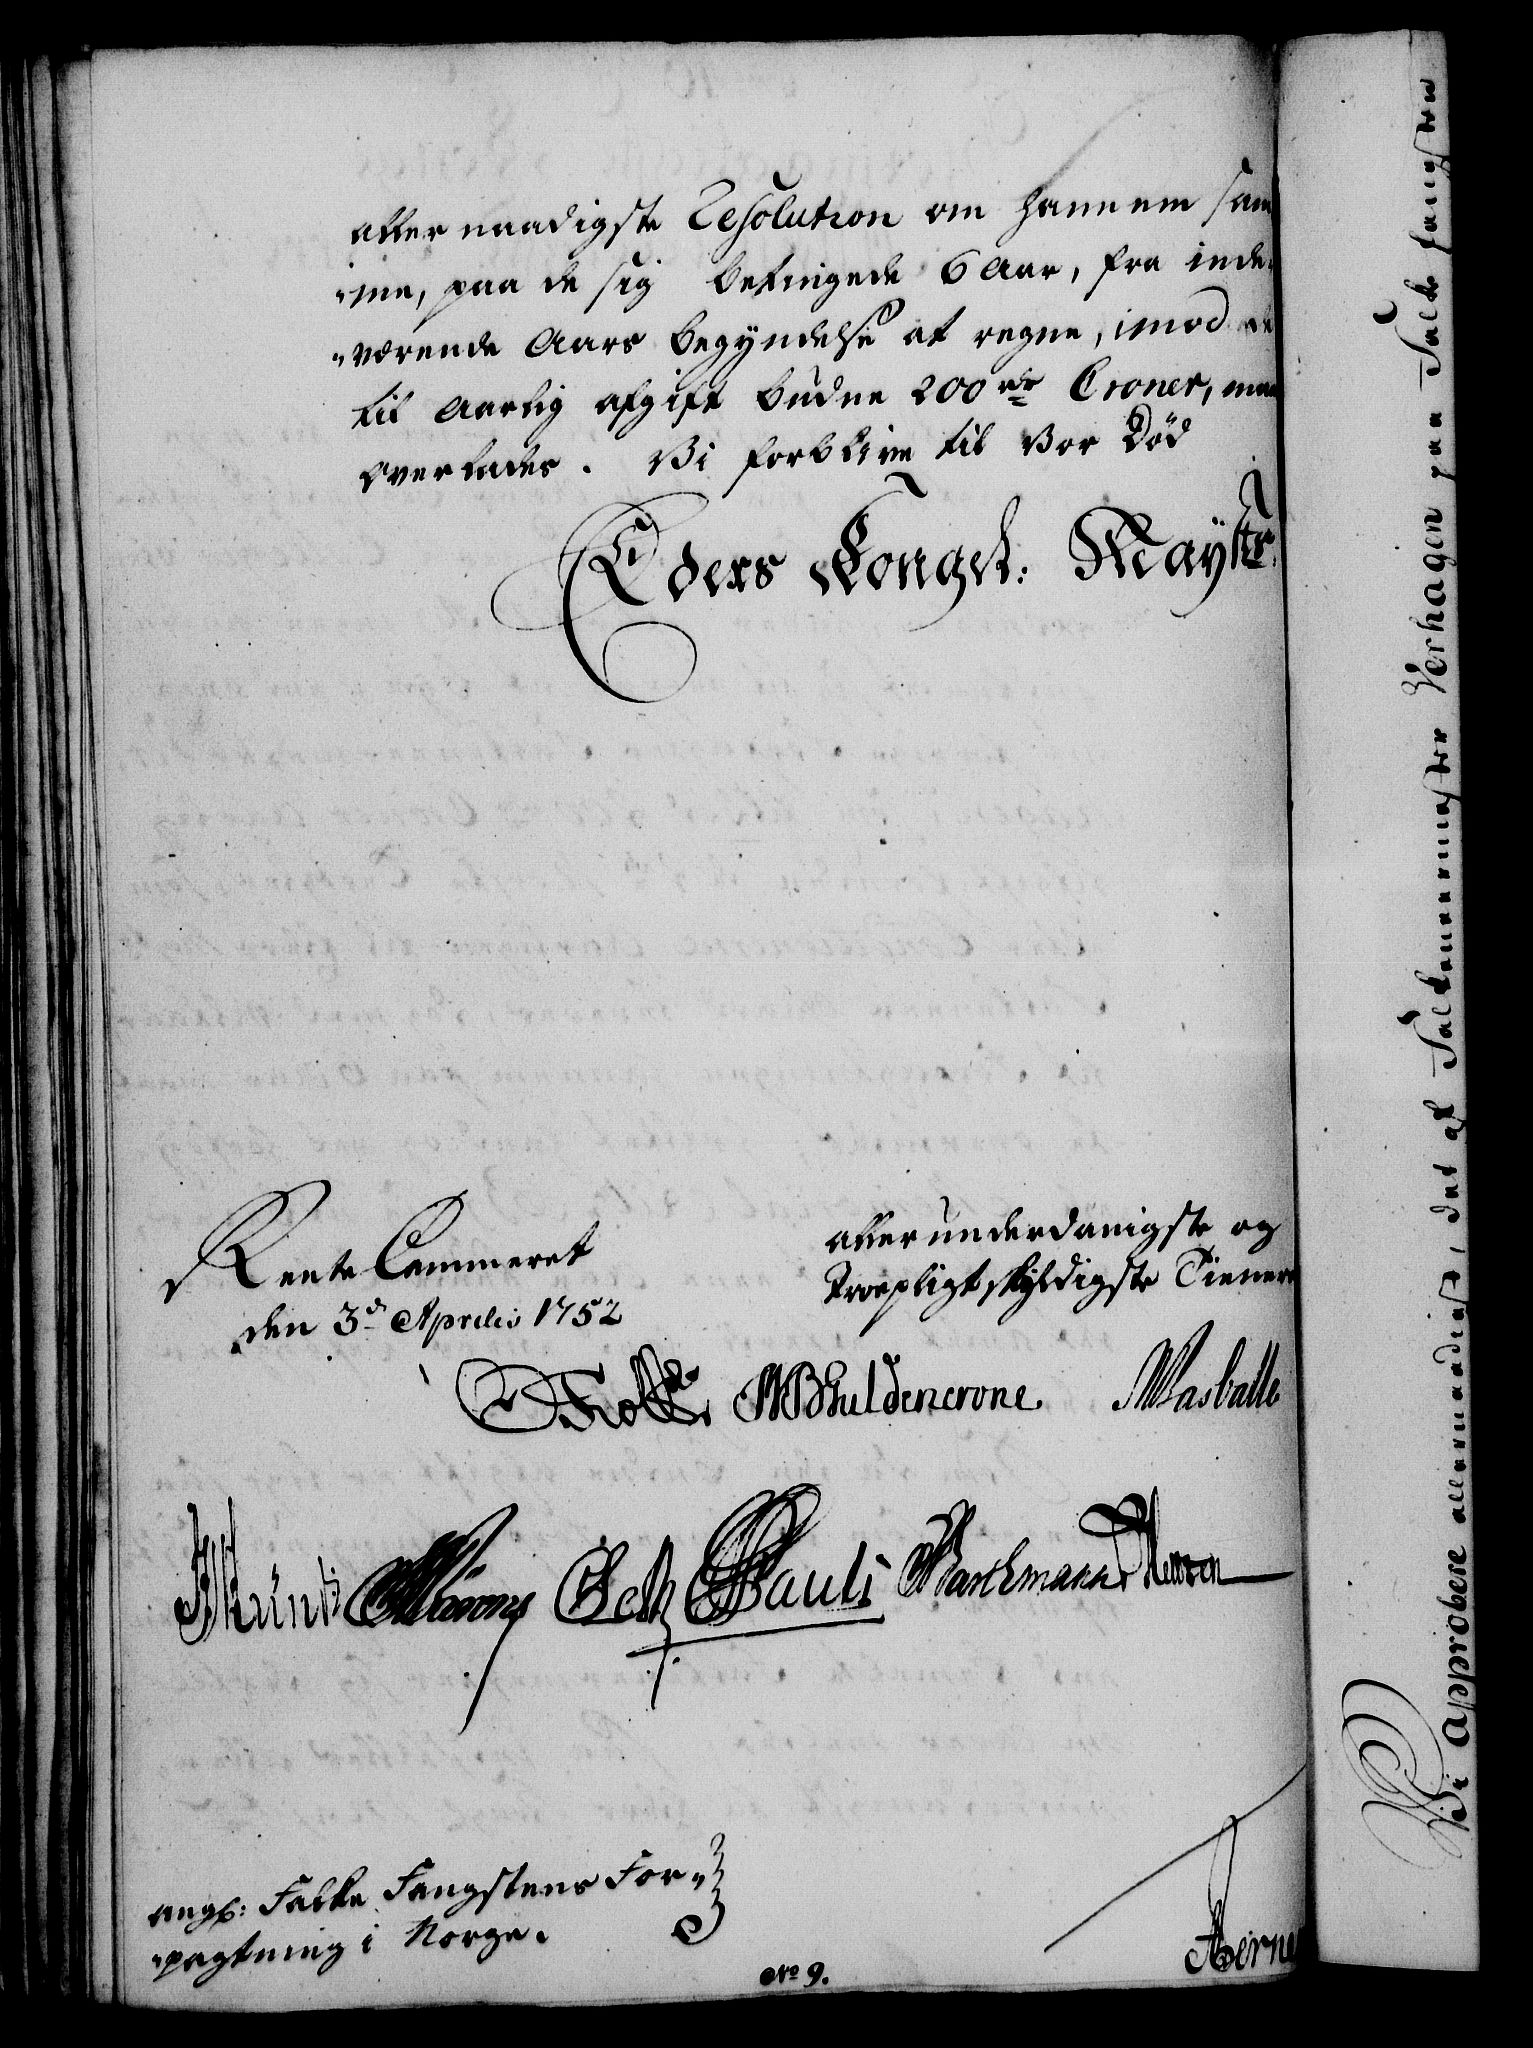 allernaadigste Resolution om hannem sam
"me, paa de sig betingede 6 Aar, fra inde-
"værende Aars begyndelse at regne, imod de
til Aarlig afgift budne 200 rdr Croner, maa
overlades. Vi forblive til Vor Død
Eders Kongel: Mayts.
Rente Cammeret
den 3d Aprilis 1752
allerunderdanigste og
troepligtskyldigste Tienere
Holck Guldencrone
Pauli
angl: Falke Fangstens For-
"pagtning i Norge.
No 9.
Vi Approbere allernaadigst, det af Falkeneermester Verhagen paa Falke fangsten